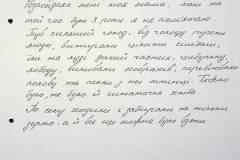 Розповідала мені моя мама. Мені на
той час було 3 роки я не пам'ятаю
був сильний голод, від голоду пухли
люди, вимирали цілими сім'ями,
їли на лузі дикий часник, цибульку,
лободу, виливали ховрашків, перебивали
полову та пекли з неї млинці. Тяжко
було, не було й сіл
По селу ходили і забирали не тільки
зерно, а й все що можна було взяти